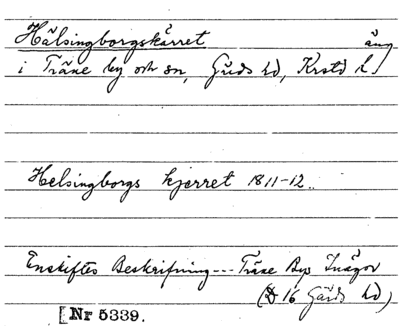 Hälsingborgskärret äng
i Träne by och sn, Gärds hd, Krstd l.
Helsingborgs kjerret 1811-12.
Enskiftes Beskrifning --- Träne Bys Inägor
( 16 Gärds hd)
[Nr 5339.